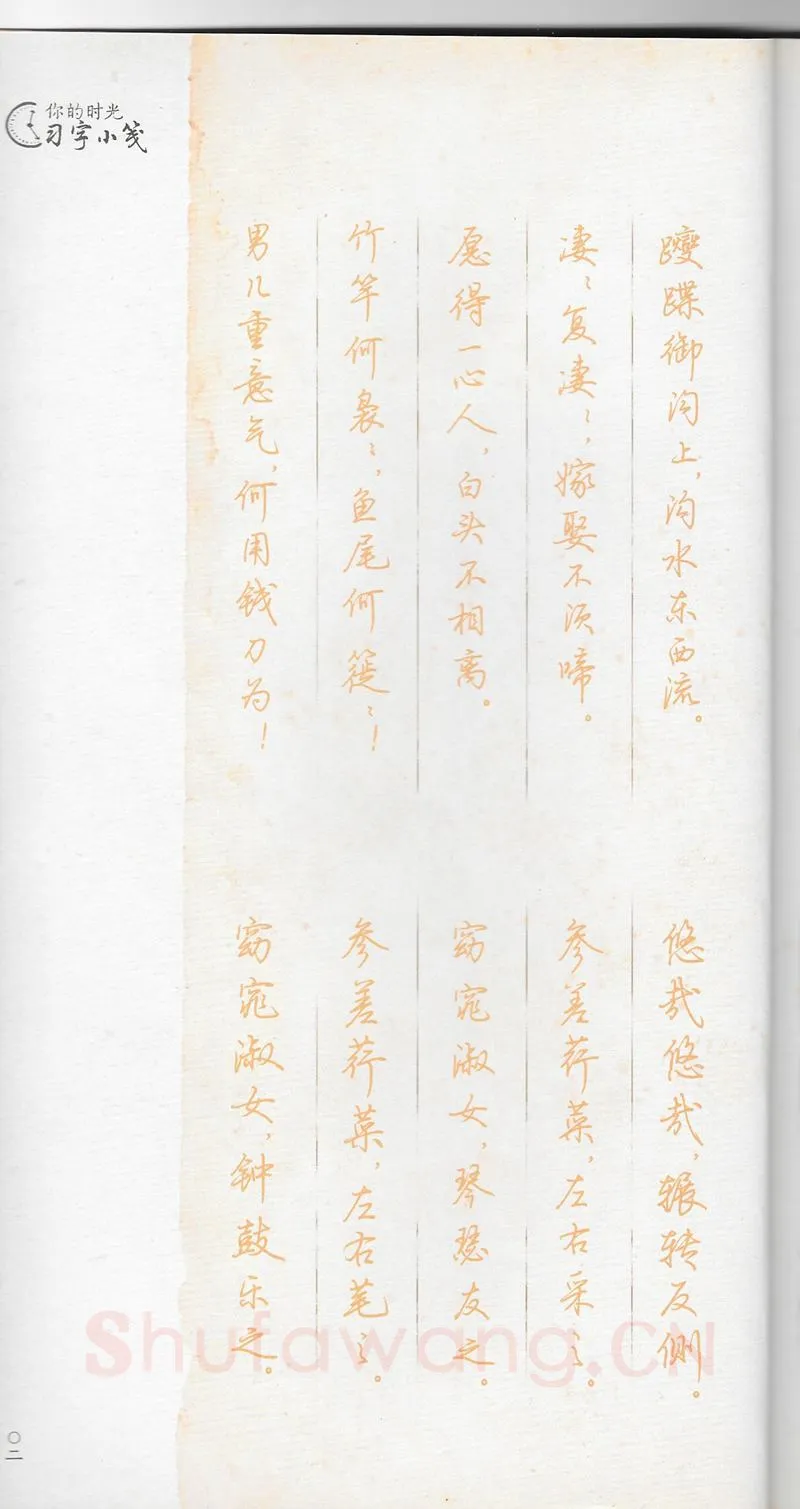 你的时光
习字小笺
躞蹀御沟上，沟水东西流。
凄〻复凄〻，嫁娶不须啼。
愿得一心人，白头不相离。
竹竿何袅〻，鱼尾何簁〻！
男儿重意气，何用钱刀为！
悠哉悠哉，辗转反侧。
参差荇菜，左右采之。
窈窕淑女，琴瑟友之。
参差荇菜，左右芼之。
窈窕淑女，钟鼓乐之。
Shufawang.CN
〇二